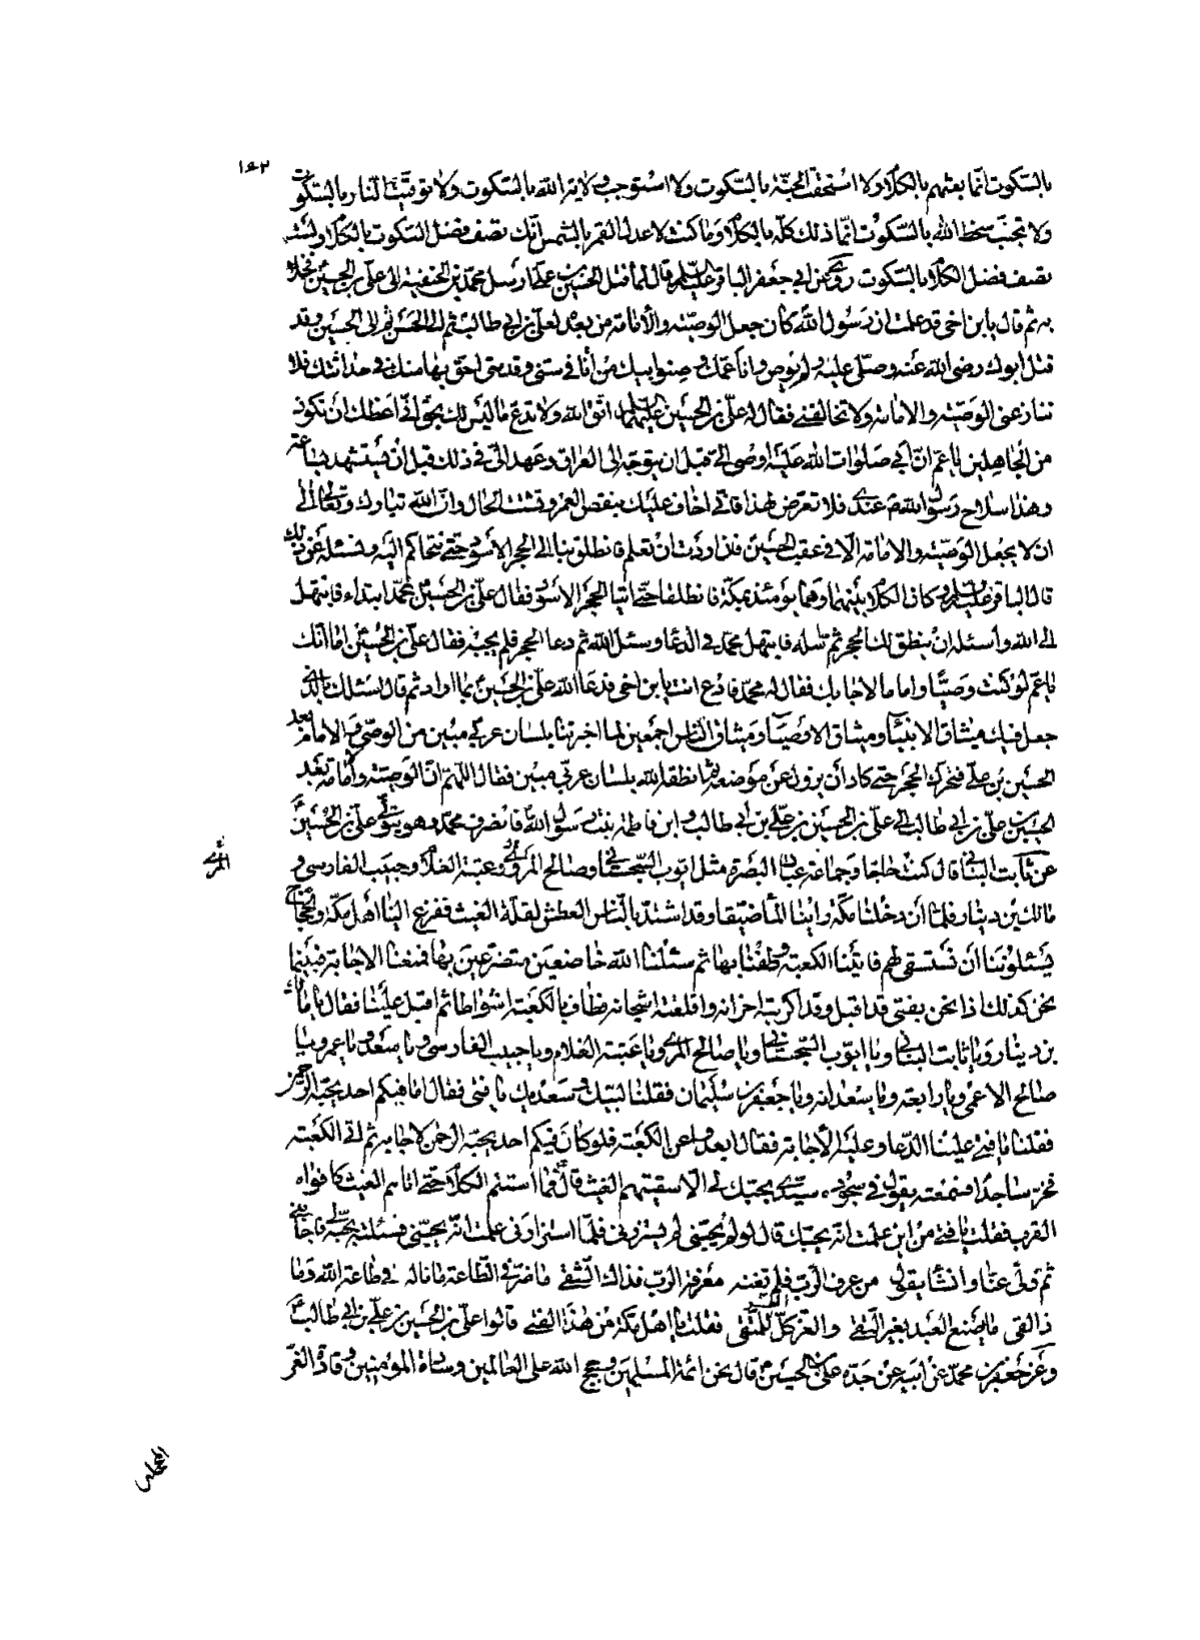 ١٥٢
بالسّكوت انّما بعثهم بالكلام ولا استحقّت الجنّة بالسّكوت ولا استوجب ولاية الله بالسّكوت ولا توقّيت النّار بالسّكوت
ولا تجنّب سخط الله بالسّكوت انّما ذلك كلّه بالكلام وما كنت لاعدل القمر بالشّمس انّك تصف فضل السّكوت بالكلام ولست
تصف فضل الكلام بالسّكوت روى عن ابي جعفر الباقر عليه السلام قال لما قتل الحسين بن علي ارسل محمّد بن الحنفية الى عليّ بن الحسين فخلا
به ثم قال يا بن اخي قد علمت ان رسول الله كان جعل الوصيّة والامامة من بعده لعليّ بن ابي طالب ثم الى الحسن ثم الى الحسين وقد
قتل ابوك رضي الله عنه وصلّى عليه ولم يوص وانا عمّك وصنو ابيك وانا في سنّي وقدمتي احق بها منك في حداثتك فلا
تنازعني الوصيّة والامامة ولا تخالفني فقال له عليّ بن الحسين عليهما السلام اتّق الله ولا تدّع ما ليس لك بحق انّي اعظك ان تكون
من الجاهلين يا عمّ انّ ابي صلوات الله عليه اوصى اليّ قبل ان يتوجّه الى العراق وعهد اليّ في ذلك قبل ان يستشهد بساعة
وهذا سلاح رسول الله ص عندي فلا تعرّض لهذا فانّي اخاف عليك بنقص العمر وتشتت الحال وانّ الله تبارك وتعالى الى
ان لا يجعل الوصيّة والامامة الّا في عقب الحسين فان اردت ان تعلم فانطلق بنا الى الحجر الاسود حتى نتحاكم اليه ونسئله عن ذلك
قال الباقر عليه السلام وكان الكلام بينهما وهما يومئذ بمكّة فانطلقا حتى اتيا الحجر الاسود فقال عليّ بن الحسين لمحمّد ابتداء فابتهل
الى الله واسئله ان ينطق لك الحجر ثم سله فابتهل محمّد في الدعا وسئل الله ثم دعا الحجر فلم يجبه فقال عليّ بن الحسين اما انّك
يا عمّ لو كنت وصيّا واماما لاجابك فقال له محمّد فادع انت يا بن اخي فدعا الله عليّ بن الحسين بما اراد ثم قال اسئلك بالذي
جعل فيك ميثاق الانبياء وميثاق الاوصياء وميثاق الناس اجمعين لما اخبرتنا بلسان عربي مبين من الوصيّ والامام بعد
الحسين بن علي فتحرك الحجر حتى كاد ان يزول عن موضعه ثم انطقه الله بلسان عربي مبين فقال اللهمّ انّ الوصيّة والامامة بعد
الحسين بن عليّ بن ابي طالب الى عليّ بن الحسين بن عليّ بن ابي طالب وابن فاطمة بنت رسول الله فانصرف محمّد وهو يتولّى عليّ بن الحسين
عن ثابت البناني قال كنت حاجا وجماعة عباد البصرة مثل ايوب السجستاني وصالح المري وعتبة الغلام وحبيب الفارسي و
مالك بن دينار فلمّا ان دخلنا مكّة راينا الماء ضيّقا وقد اشتدّ بالنّاس العطش لقلّة الغيث ففزع الينا اهل مكّة والحجاج
يسئلوننا ان نستسقي لهم فاتينا الكعبة وطفنا بها ثم سئلنا الله خاضعين متضرّعين بها فمنعنا الاجابة فبينما
نحن كذلك اذا نحن بفتى قد اقبل وقد اكربته احزانه واقلقته اشجانه فطاف بالكعبة اشواطا ثم اقبل علينا فقال يا مالك
بن دينار ويا ثابت البناني ويا ايوب السجستاني ويا صالح المري ويا عتبة الغلام ويا حبيب الفارسي ويا سعد ويا عمر ويا
صالح الاعمى ويا رابعة ويا سعدانه ويا جعفر بن سليمان فقلنا لبيك وسعديك يا فتى فقال اما فيكم احد يحبّه الرحمن
فقلنا يا فتى علينا الدعا وعليه الاجابة فقال ابعدوا عن الكعبة فلو كان فيكم احد يحبّه الرحمن لاجابه ثم اتى الكعبة
فخرّ ساجدا فسمعته يقول في سجوده سيّدي بحبّك لي الّا سقيتهم الغيث قال فما استتمّ الكلام حتى اتاهم الغيث كافواه
القرب فقلت يا فتى من اين علمت انّه يحبّك قال لو لم يحبّني لم يستزرني فلمّا استزارني علمت انّه يحبّني فسئلته بحبّه لي فاجابني
ثم ولّى عنّا وانشأ يقول من عرف الرّبّ فلم تغنه معرفة الربّ فذاك الشّقي ما ضرّ في الطّاعة ما ناله في طاعة الله وما
ذا لقى ما يصنع العبد بغير التّقى والعزّ كلّ العزّ للمتّقي فقلت يا اهل مكّة من هذا الفتى قالوا عليّ بن الحسين بن عليّ بن ابي طالب
وعن جعفر بن محمّد عن ابيه عن جدّه علي بن الحسين قال نحن ائمّة المسلمين وحجج الله على العالمين وسادة المؤمنين وقادة الغرّ
المري
المحجلين